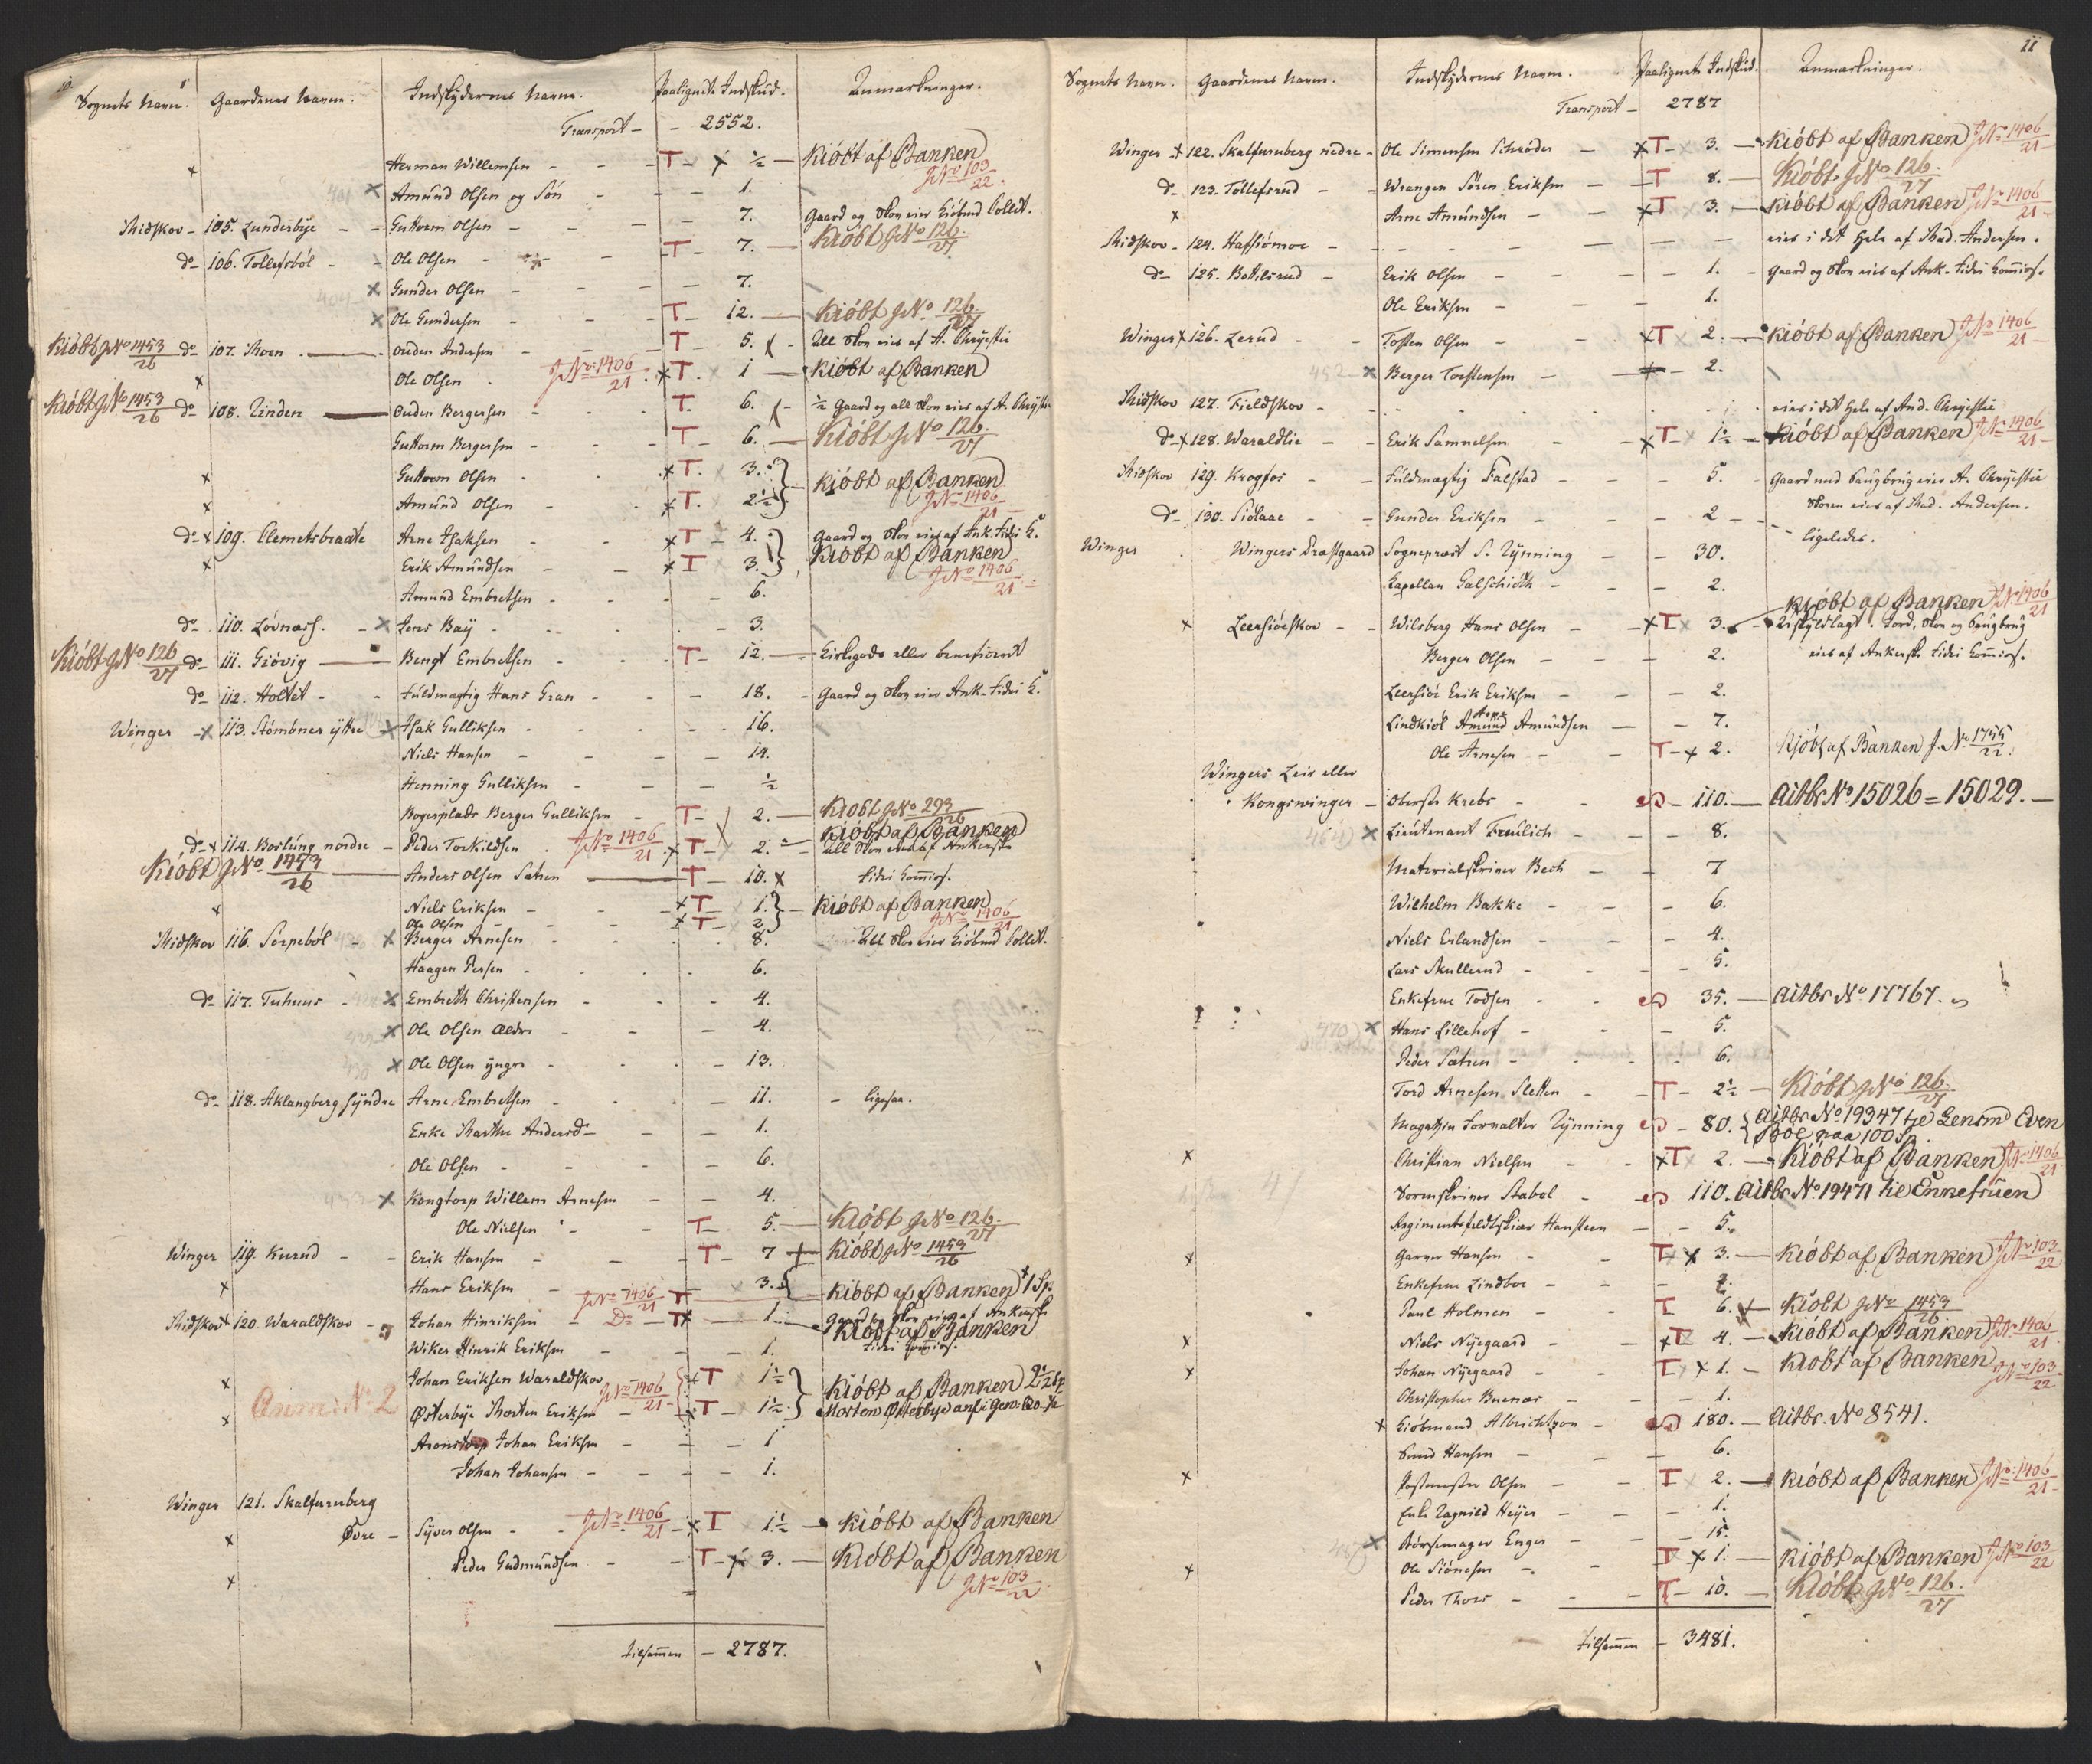 10.
Sognets Navn. Gaardenes Navne. Indskydernes Navne. Paalignede Indskud. Anmærkninger.
Transport - 2552.
x Herman Willemsen - T - x ½ - Kiöbt af Banken JNo 103/22.
401 x Amund Olsen og Sön - 1.
Midskov - 105. Lunderbye - Guttorm Olsen - 7. Gaard og Skov eier Kiöbmd Collet.
do - 106. Tollefsböl - Ole Olsen - T - 7. - Kiöbt JNo 126/27
404 x Gunder Olsen - 7.
x Ole Gundersen - T - 12. - Kiöbt JNo 126/27
Kiöbt JNo 1453/26 do 107. Moen - Ouden Andersen - T - 5. All Skov eies af A. Chrystie
x Ole Olsen JNo 1406/21 x T. 1 - Kiöbt af Banken
Kiöbt JNo 1453/26 do 108. Linden - Ouden Bergersen - T. 6. - ½ Gaard og all Skov eies af A. Chrystie
Guttorm Bergersen - T - 6. - Kiöbt JNo 126/27
x Guttorm Olsen - x T. 3.
x Amund Olsen - x T. 2½ } Kiöbt af Banken JNo 1406/21
do x 109. Clemetsbraate Arne Isaksen - x T 4. Gaard og Skov eies af Ank. Fidei C.
x Erik Amundsen - x T 3. } Kiöbt af Banken JNo 1406/21
Amund Embretsen - 6.
do 110. Lövnæss. - x Jens Bay - 3.
Kiöbt JNo 126/27 do 111. Giövig - Bengt Embretsen - T - 12. - Kirkegods eller beneficeret
do 112. Holtet - Fuldmægtig Hans Gran - 18. - Gaard og Skov eier Ank. Fidei C.
Winger - x 113. Stömbner yttre x Isak Gulliksen - 16.
Niels Hansen - 14.
Henning Gulliksen - ½
Bogerplads Berger Gulliksen - T - 2. - Kiöbt JNo 293/26
do x 114. Borlung nordre - Peder Torkildsen JNo 1406/21 x T - 2. - Kiöbt af Banken All Skov eies af Ankerske
Kiöbt JNo 1453/26 - Anders Olsen Sætren - T - 10. x Fidei Comiss.
x Niels Eriksen - x T - 1.
Ole Olsen - x T - 2 } Kiöbt af Banken JNo 1406/21
Midskov 116. Serpeböl - x Berger Arnesen - 8. All Skov eier Kiöbmd Collet.
Haagen Persen - 6.
do 117. Tuhuus - x Embreth Christensen - 4.
x Ole Olsen ældre - 4.
x Ole Olsen yngre - 13.
do 118. Aklangberg syndre Arne Embretsen - 11. - ligesaa.
Enke Marthe Andersd - 1.
Ole Olsen - 6.
x Kongtorp Willem Arnesen - 4.
Ole Nielsen - T - 5. - Kiöbt JNo 126/27
Winger 119. Kurud - Erik Hansen - T - 7 + Kiöbt JNo 1453/26
x Hans Eriksen - JNo 1406/21 T 3. { Kiöbt af Banken 1 Sp.
Midskov x 120. Waraldskov - Johan Hinriksen - Do - T x 1. Gaard og Skov eies af Ankerske Kiöbt af Banken
Wiker Hinrik Eriksen - 1. Fidei Comiss.
x Johan Eriksen Waraldskov x T 1½
Anm: No 2 x Österbye Morten Eriksen JNo 1406/21 x T - 1½ } Kiöbt af Banken 2½ Sp Morten Österbye
Aronstorp Johan Eriksen - 1
Johan Johansen - 1.
Winger 121. Skalfuruberg
x Övre - Syver Olsen - JNo 1406/21 x T 1½ - Kiöbt af Banken
x Peder Gudmundsen - T - x 3. - Kiöbt af Banken JNo 103/22
tilsammen - 2787.
11
Sognets Navn. Gaardenes Navne. Indskydernes Navne. Paalignede Indskud. Anmærkninger.
Transport - 2787
Winger x 122. Skalfuruberg nedre - Ole Simensen Schröder - x T - 3. - Kiöbt af Banken JNo 1406/21
do 123. Tollefsrud - Wrangen Sören Eriksen - T 8. - Kiöbt JNo 126/27
x Arne Amundsen - x T 3. - Kiöbt af Banken JNo 1406/21
Midskov - 124. Hafsiömoe - eies i det Hele af Mad. Andersen.
do - 125. Bottilsrud - Erik Olsen - 1. - Gaard og Skov eies af Ank. Fidei Comiss.
Ole Eriksen - 1.
Winger x 126. Lerud - Tosten Olsen - x T 2. - Kiöbt af Banken JNo 1406/21
452 x Berger Torstensen - 2.
Midskov 127. Fieldskov - eies i det Hele af And. Chrystie
do x 128. Waraldlie - Erik Samuelsen - x T 1½ - Kiöbt af Banken JNo 1406/21
Midskov 129. Krogfos - Fuldmægtig Falstad - 5. - Gaard med Saugbrug eier A. Chrystie
Skoven eies af Mad. Andersen.
do 130. Siölaae - Gunder Eriksen - 2 - ligeledes.
Winger Wingers Præstgaard Sognepræst S. Rynning - 30.
Kapellan Galschiödt - 2.
x Leersiöeskov - Wilsberg Hans Olsen - x T 3. Kiöbt af Banken JNo 1406/21 Jord, Skov og Saugbrug
Berger Olsen - 2. eies af Ankerske Fidei Comiss.
Leersiöe Erik Eriksen - 2.
Lindkiöl Amund Arne Amundsen - 7.
Ole Arnesen - T - x 2. Kjöbt af Banken J. No 1755/22.
Wingers Leir eller
Kongswinger - Oberste Krebs - 110. - Aitbr No 15026 = 15029. -
464 x Lieutenant Freulich - 8.
Materialskriver Bech - 7
Wilhelm Bakke - 6.
Niels Erlandsen - 4.
Lars Skullerud - 5.
Enkefrue Todsen - 35. - Aitbr No 17767.
470 x Hans Lillehof - 5.
Peder Sætren - 6.
Tord Arnesen Sletten - T - 2½ - Kiöbt JNo 126/27
Magatzin Forvalter Rynning - 80. { Aitbr No 19347 til Lensmd Even Böe paa 100 Sp.
x Christian Nielsen - x T 2. - Kiöbt af Banken JNo 1406/21
Sorenskriver Stabel - 110. Aitbr No 19471 til Enkefruen
Regimentsfeldtskiær Hansteen - 5.
x Garver Hansen - T x 3. - Kiöbt af Banken JNo 103/22
Enkefrue Lindboe - 2.
Paul Holmen - T 6. - Kiöbt JNo 1453/26
x Niels Nyegaard - x T 4. - Kiöbt af Banken JNo 1406/21
x Johan Nyegaard - T x 1. - Kiöbt af Banken JNo 103/22
Christopher Buenæs - 1.
x Kiöbmand Albrichtzon - 180. - Aitbr. No 8541.
Svend Hansen - 6.
x Postmester Olsen - T 2. - Kiöbt af Banken JNo 1406/21
Enke Ragnild Heyer - 1.
x Börsemager Enger - 15.
x Ole Siönesen - T x 1. - Kiöbt af Banken JNo 103/22
Peder Thoes - T - 10. - Kiöbt JNo 126/27
tilsammen - 3481.